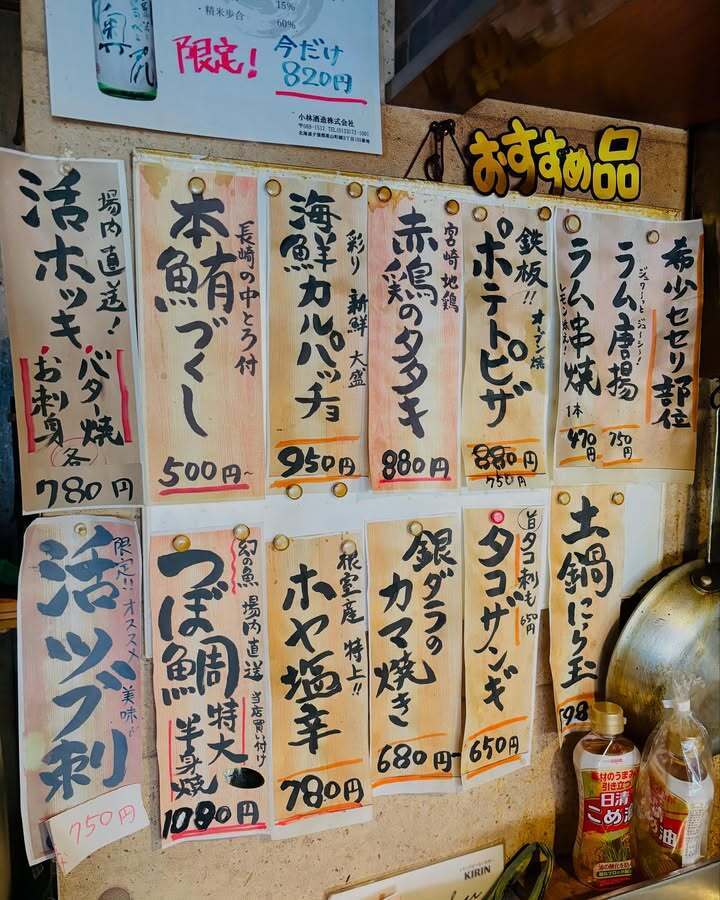 15%
・精米歩合
60%
限定!
今だけ
820円
小林酒造株式会社
おすすめ品
希少セセリ部位
ラム唐揚
750円
ラム串焼
1本
470円
鉄板!!
オーブン焼
ポテトピザ
880円
750円
宮崎地鶏
赤鶏のタタキ
880円
彩り 新鮮 大盛
海鮮カルパッチョ
950円
長崎の中とろ付
本鮪づくし
500円~
場内直送!
活ホッキ
バター焼
お刺身
各
780円
土鍋にら玉
598
旨タコ刺も650円
タコザンギ
650円
銀ダラの
カマ焼き
680円
根室産 特上!!
ホヤ塩辛
780円
幻の魚 場内直送
当店買い付け
つぼ鯛
特大
半身焼
1080円
限定!! オススメ
美味
活ツブ刺
750円
素材のうまみ
引き立つ
日清
こめ油
油
KIRIN